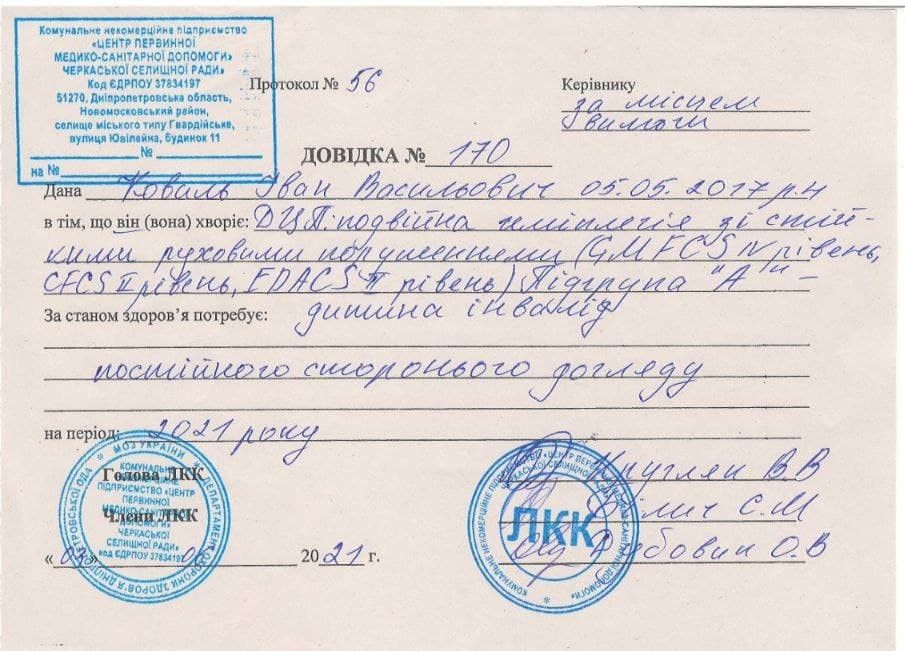 Комунальне некомерційне підприємство
«ЦЕНТР ПЕРВИННОЇ
МЕДИКО-САНІТАРНОЇ ДОПОМОГИ»
ЧЕРКАСЬКОЇ СЕЛИЩНОЇ РАДИ»
Код ЄДРПОУ 37834197
51270, Дніпропетровська область,
Новомосковський район,
селище міського типу Гвардійське,
вулиця Ювілейна, будинок 11
№
на №
Протокол № 56
Керівнику
за місцем
вимоги
ДОВІДКА № 170
Дана Коваль Іван Васильович 05.05.2017 р.н
в тім, що він (вона) хворіє: ДЦП: подвійна геміплегія зі стій-
кими руховими порушеннями (GMFCS IV рівень,
CFCS II рівень, EDACS II рівень) Підгрупа "А" -
За станом здоров’я потребує: дитина інвалід
постійного стороннього догляду
на період: 2021 року
Голова ЛКК Кругляк В.В
Члени ЛКК С.М
О.В
« » 2021 г.
МОЗ УКРАЇНИ ДЕПАРТАМЕНТ ОХОРОНИ ЗДОРОВ'Я
КОМУНАЛЬНЕ
НЕКОМЕРЦІЙНЕ
ПІДПРИЄМСТВО «ЦЕНТР
ПЕРВИННОЇ
МЕДИКО-САНІТАРНОЇ
ДОПОМОГИ»
ЧЕРКАСЬКОЇ
СЕЛИЩНОЇ РАДИ»
код ЄДРПОУ 37834197
КОМУНАЛЬНЕ НЕКОМЕРЦІЙНЕ ПІДПРИЄМСТВО «ЦЕНТР ПЕРВИННОЇ МЕДИКО-САНІТАРНОЇ ДОПОМОГИ»
ЧЕРКАСЬКОЇ СЕЛИЩНОЇ РАДИ»
ЛКК